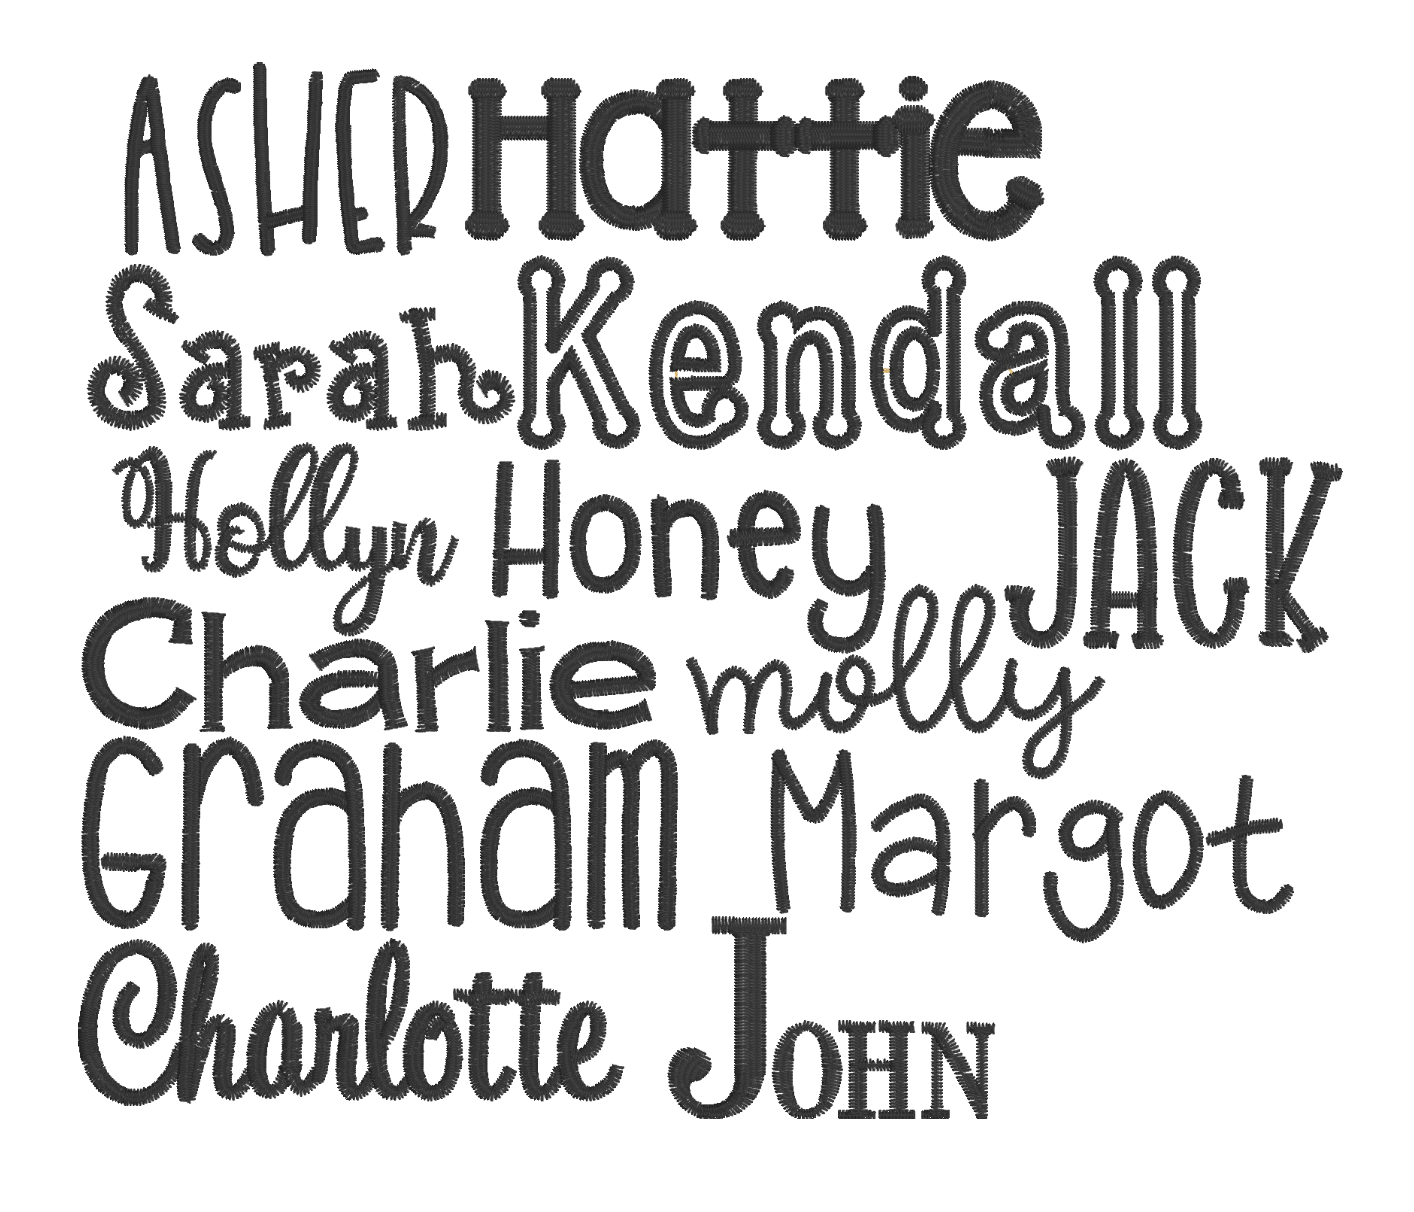 ASHER Hattie
Sarah Kendall
Hollyn Honey JACK
Charlie molly
Graham Margot
Charlotte JOHN